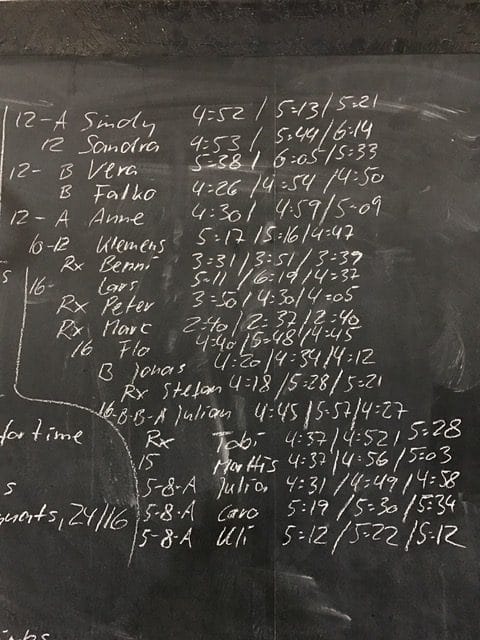 12-A Sindy 4:52 / 5:13 / 5:21
12 Sandra 4:53 / 5:44 / 6:14
12- B Vera 5:38 / 6:05 / 5:33
B Falko 4:26 / 4:54 / 4:50
12-A Anne 4:30 / 4:59 / 5:09
10-12 Klemens 5:17 / 5:16 / 4:47
Rx Benni 3:31 / 3:51 / 3:39
16- Lars 5:11 / 6:19 / 4:37
Rx Peter 3:50 / 4:30 / 4:05
Rx Marc 2:40 / 2:37 / 2:40
16 Flo 4:40 / 5:48 / 4:45
B Jonas 4:20 / 4:34 / 4:12
Rx Stefan 4:18 / 5:28 / 5:21
16-8-B-A Julian 4:45 / 5:57 / 4:27
for time Rx Tobi 4:37 / 4:52 / 5:28
15 Matthis 4:37 / 4:56 / 5:03
s 5-8-A Julia 4:31 / 4:49 / 4:58
24/16 5-8-A Caro 5:19 / 5:30 / 5:34
5-8-A Uli 5:12 / 5:22 / 5:12